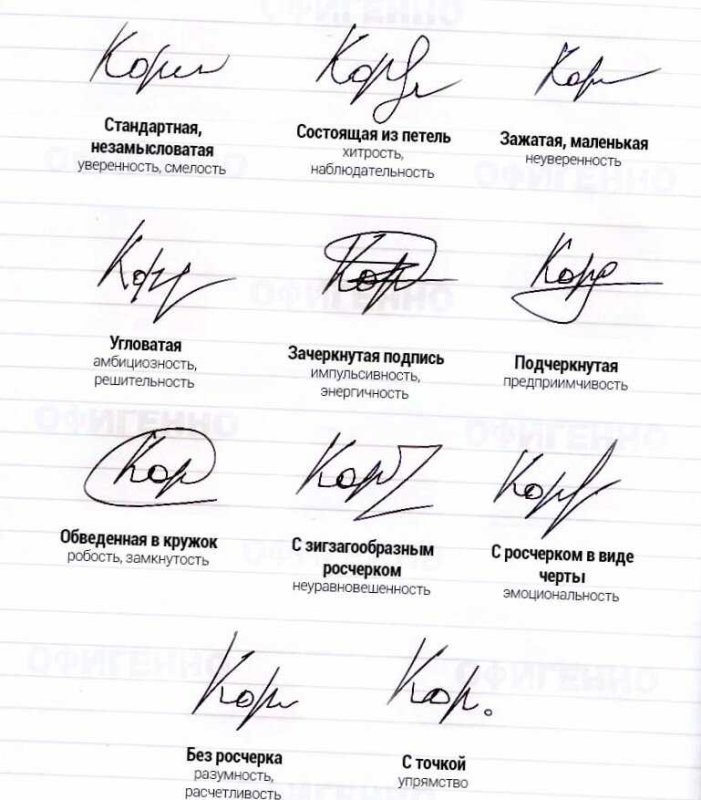 Кори
Корзи
Кор
Стандартная,
незамысловатая
уверенность, смелость
Состоящая из петель
хитрость,
наблюдательность
Зажатая, маленькая
неуверенность
ОФИГЕННО
Кор
Кор
Кор
Угловатая
амбициозность,
решительность
Зачеркнутая подпись
импульсивность,
энергичность
Подчеркнутая
предприимчивость
ОФИГЕННО
Кор
Кор
Кор
Обведенная в кружок
робость, замкнутость
С зигзагообразным
росчерком
неуравновешенность
С росчерком в виде
черты
эмоциональность
ОФИГЕННО
Кор
Кор.
Без росчерка
разумность,
расчетливость
С точкой
упрямство